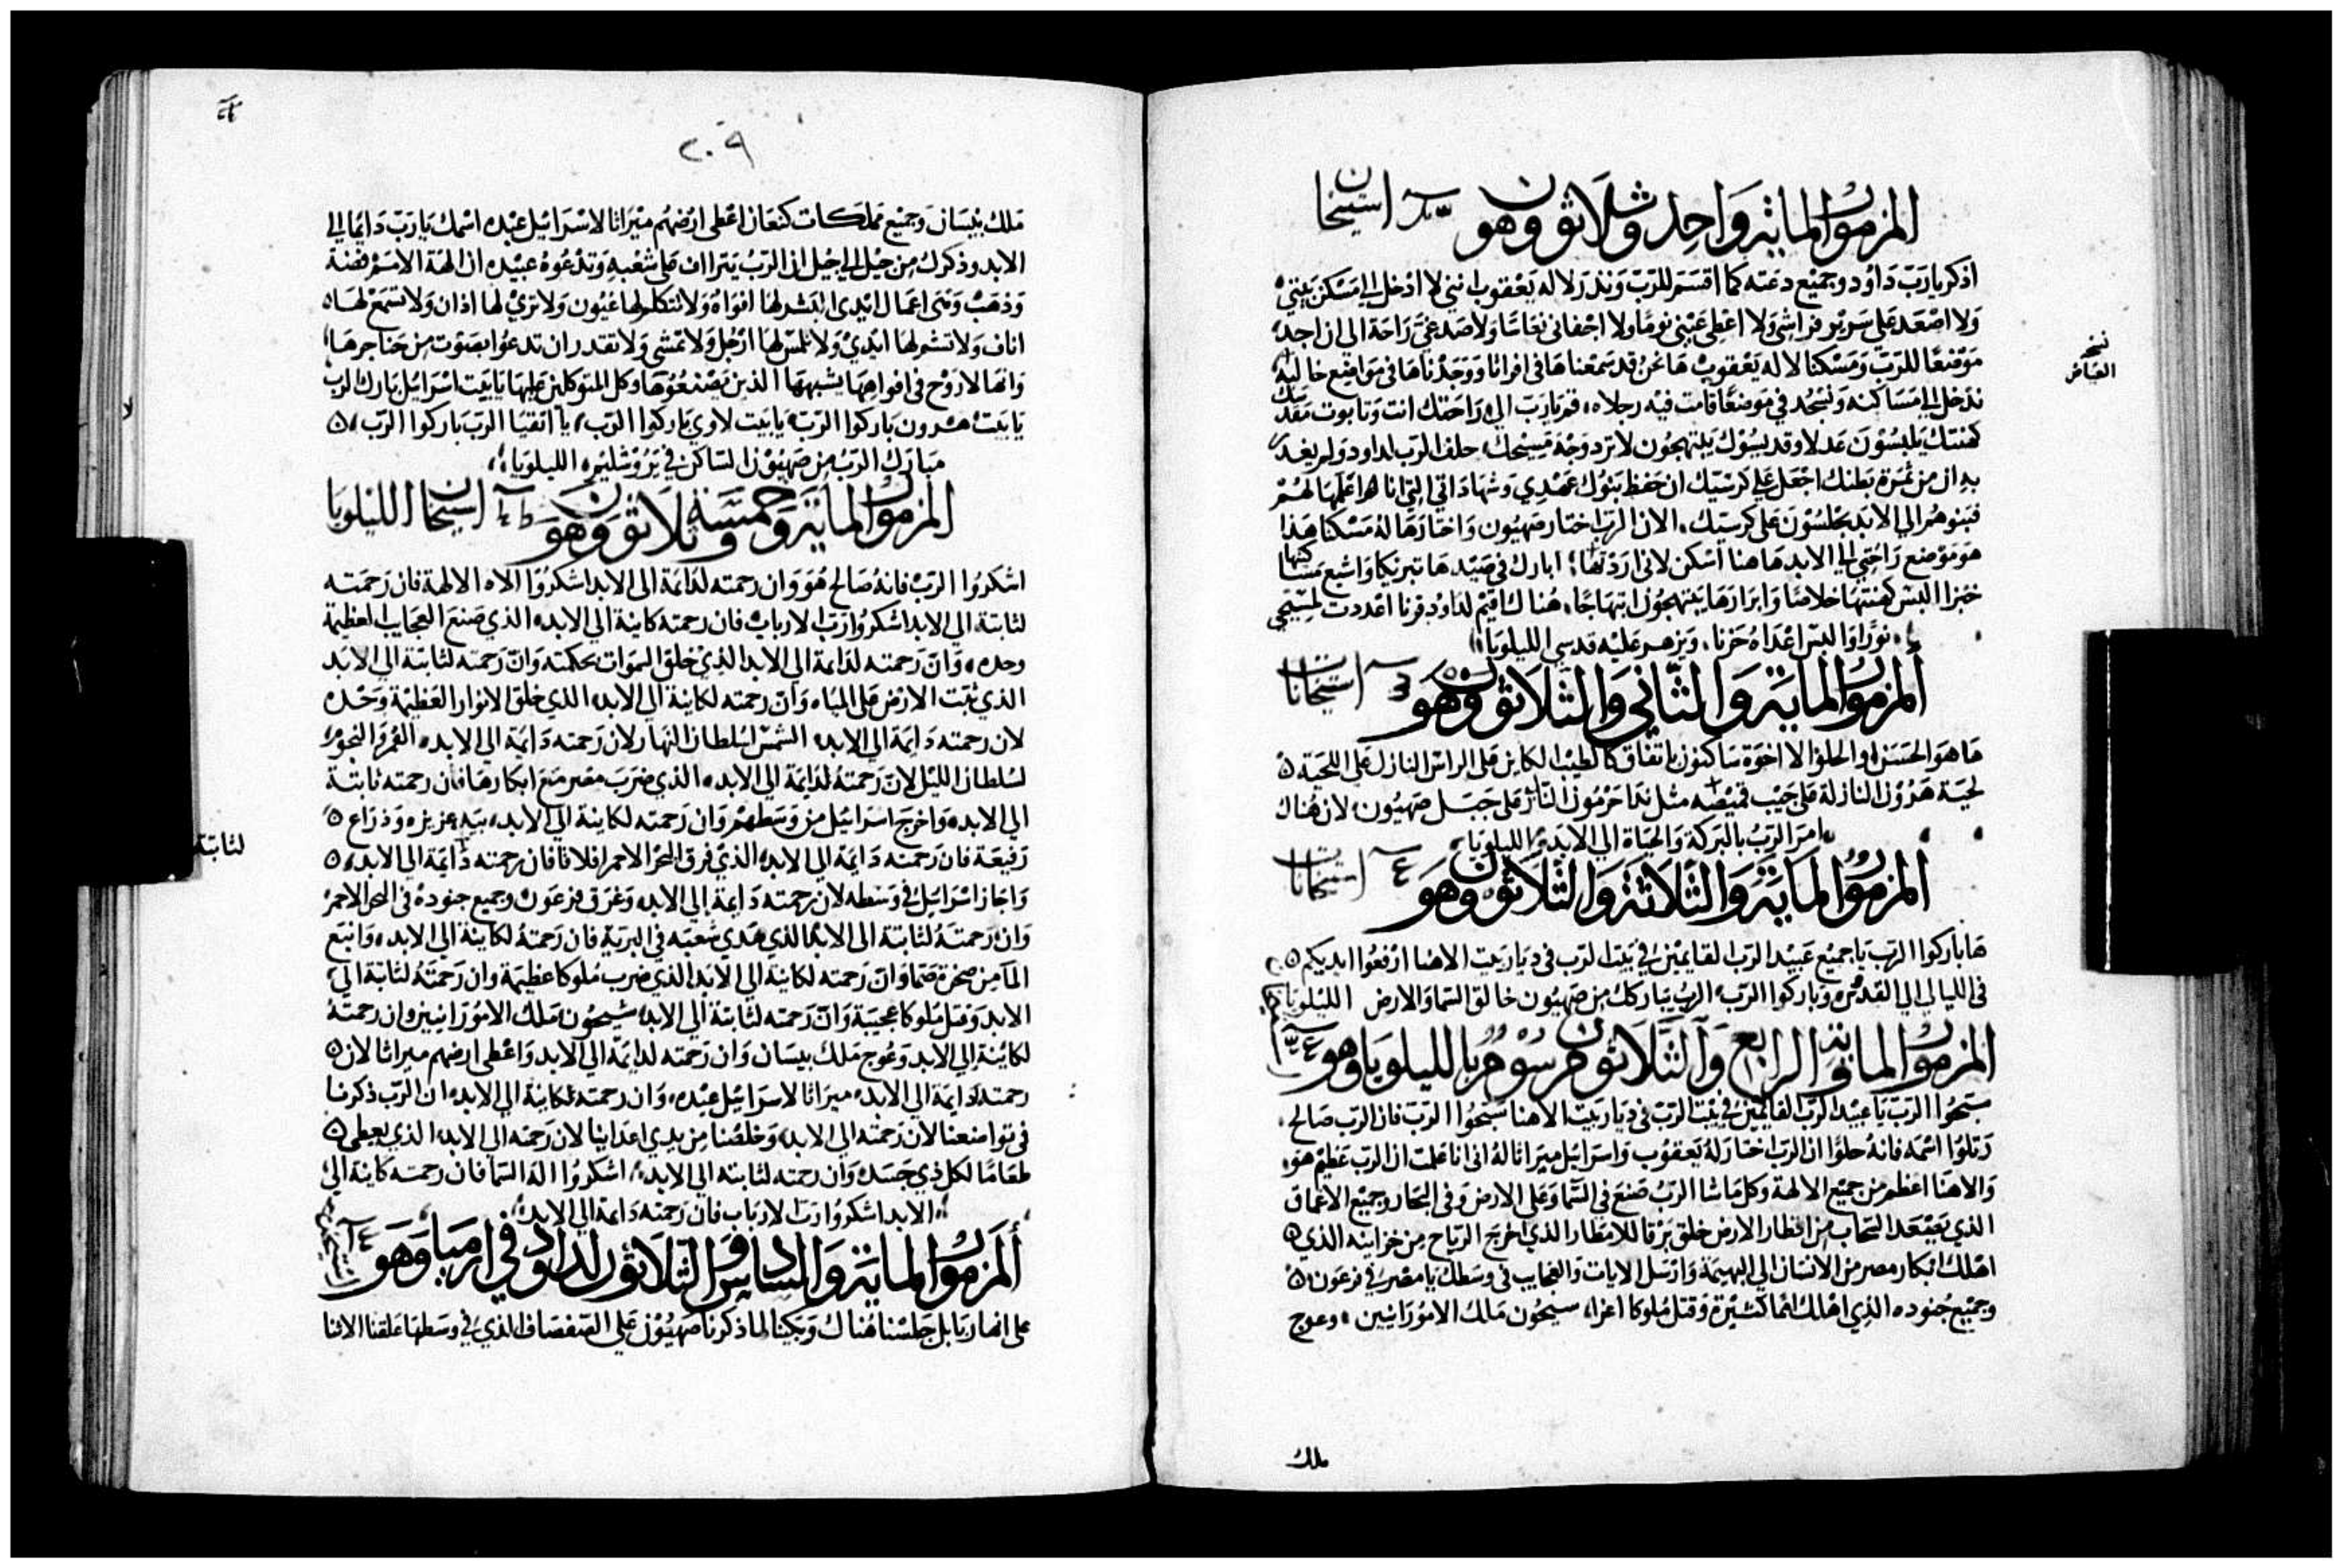 المزمور الماية واحد وثلاثون وهو استيخان
اذكر يا رب داود وجميع دعته كما اقسم للرب ونذر لاله يعقوب انني لا ادخل الي مسكن بيتي
ولا اصعد على سرير فراشي ولا اعطي عيني نوما ولا اجفاني نعاسا ولا صدغي راحة الى ان اجد
موضعا للرب ومسكنا لاله يعقوب ها نحن قد سمعناها في افراتا ووجدناها في مواضع خالية
ندخل الي مساكنه ونسجد في موضعا قامت فيه رجلاه قم يا رب الى راحتك انت وتابوت مقدسك
كهنتك يلبسون عدلا وقديسوك يبتهجون لا ترد وجه مسيحك حلف الرب لداود ولم يغدر
به ان من ثمرة بطنك اجعل على كرسيك ان حفظ بنوك عهدي وشهاداتي التي انا اعلمها لهم
فبنوهم الي الابد يجلسون على كرسيك الان الرب اختار صهيون واختارها له مسكنا هذا
هو موضع راحتي الي الابد هاهنا اسكن لاني اردتها ابارك في صيدها تبريكا واشبع مساكنها
خبزا البس كهنتها خلاصا وابرارها يبتهجون ابتهاجا هناك اقيم لداود قرنا اعددت لمسيحي
نورا والبس اعداه خزنا ويزهر عليه قدسي الليلويا
المزمور الماية والثاني والثلاثون وهو ٣ استيخانات
ها هو الحسن او الحلو الا اخوة ساكنون باتفاق كالطيب الكاين على الراس النازل على اللحية
لحية هرون النازلة على جيب قميصه مثل ندا حرمون النازل على جبل صهيون لان هناك
امر الرب بالبركة والحياة الي الابد الليلويا
المزمور الماية والثلاثة والثلاثون وهو ٤ استيخانات
ها باركوا الرب يا جميع عبيد الرب القايمين في بيت الرب في ديار بيت الاهنا ارفعوا ايديكم
في الليالي الي القدس وباركوا الرب الرب يباركك من صهيون خالق السما والارض الليلويا
المزمور الماية الرابع والثلاثون مرسوم بالليلويا وهو
سبحوا الرب يا عبيد الرب القايمين في بيت الرب في ديار بيت الاهنا سبحوا الرب فان الرب صالح
رتلوا اسمه فانه حلوا ان الرب اختار له يعقوب واسرائيل ميراثا له اني انا علمت ان الرب عظيم هو
والاهنا اعظم من جميع الالهة وكل ماشا الرب صنع في السما وعلى الارض وفي البحار وجميع الاعماق
الذي يصعد السحاب من اقطار الارض خلق برقا للامطار الذي اخرج الرياح من خزاينه الذي
اهلك ابكار مصر من الانسان الي البهيمة وارسل الايات والعجايب في وسطك يا مصر في فرعون
وجميع جنوده الذي اهلك امما كثيرة وقتل ملوكا اعزا سيحون مالك الامورانيين وعوج
ملك
٢٠٩
ملك بيسان وجميع مملكات كنعان اعطى ارضهم ميراثا لاسرائيل عبده اسمك يا رب دايما الي
الابد وذكرك من جيل الي جيل ان الرب يتراف على شعبه وتدعوه عبيده ان الهة الامم فضة
وذهب وهي اعمال ايدي البشر لها افواه ولا تتكلم لها عيون ولا تري لها اذان ولا تسمع لها
اناف ولا تشم لها ايدي ولا تلمس لها ارجل ولا تمشي ولا تقدر ان تدعوا بصوت من حناجرها
وانها لا روح في افواهها يشبهها الذين يصنعوها وكل المتوكلين عليها يا بيت اسرائيل بارك الرب
يا بيت هرون باركوا الرب يا بيت لاوي باركوا الرب يا اتقيا الرب باركوا الرب
مبارك الرب من صهيون الساكن في يروشليم الليلويا
المزمور الماية وخمسة وثلاثون وهو استيخان الليلويا
اشكروا الرب فانه صالح هو وان رحمته لدايمة الى الابد اشكروا الاه الالهة فان رحمته
لثابتة الي الابد اشكروا رب الارباب فان رحمته كاينة الي الابد الذي صنع العجايب العظيمة
وحده وان رحمته لدايمة الي الابد الذي خلق السموات بحكمته وان رحمته لثابتة الي الابد
الذي ثبت الارض على المياه وان رحمته لكاينة الي الابد الذي خلق الانوار العظيمة وحده
لان رحمته دايمة الي الابد الشمس لسلطان النهار لان رحمته دايمة الي الابد القمر والنجوم
لسلطان الليل لان رحمته لدايمة الي الابد الذي ضرب مصر مع ابكارها فان رحمته ثابتة
الي الابد واخرج اسرائيل من وسطهم وان رحمته لكاينة الي الابد بيد عزيزه وذراع
رفيعة فان رحمته دايمة الي الابد الذي فرق البحر الاحمر افلاقا فان رحمته دايمة الي الابد
واجاز اسرائيل في وسطه لان رحمته دايمة الي الابد وغرق فرعون وجميع جنوده في البحر الاحمر
وان رحمته لثابتة الى الابد الذي هدي شعبه في البرية فان رحمته لكاينة الي الابد وانبع
الما من صخرة صما وان رحمته لكاينة الي الابد الذي ضرب ملوكا عظيمة وان رحمته لثابتة الي
الابد وقتل ملوكا عجيبة وان رحمته لثابتة الي الابد سيحون ملك الامورانيين وان رحمته
لكاينة الي الابد وعوج ملك بيسان وان رحمته لدايمة الي الابد واعطى ارضهم ميراثا لان
رحمته دايمة الي الابد ميراثا لاسرائيل عبده وان رحمته لكاينة الي الابد ان الرب ذكرنا
في تواضعنا لان رحمته الي الابد وخلصنا من يدي اعداينا لان رحمته الي الابد الذي يعطي
طعاما لكل ذي جسد وان رحمته لثابته الي الابد اشكروا اله السما فان رحمته كاينة الي
الابد اشكروا رب الارباب فان رحمته دايمة الي الابد
المزمور الماية والسادس والثلاثون لداود في ارميا وهو
على انهار بابل جلسنا هناك وبكينا لما ذكرنا صهيون على الصفصاف الذي في وسطها علقنا الاتنا
لثابتة